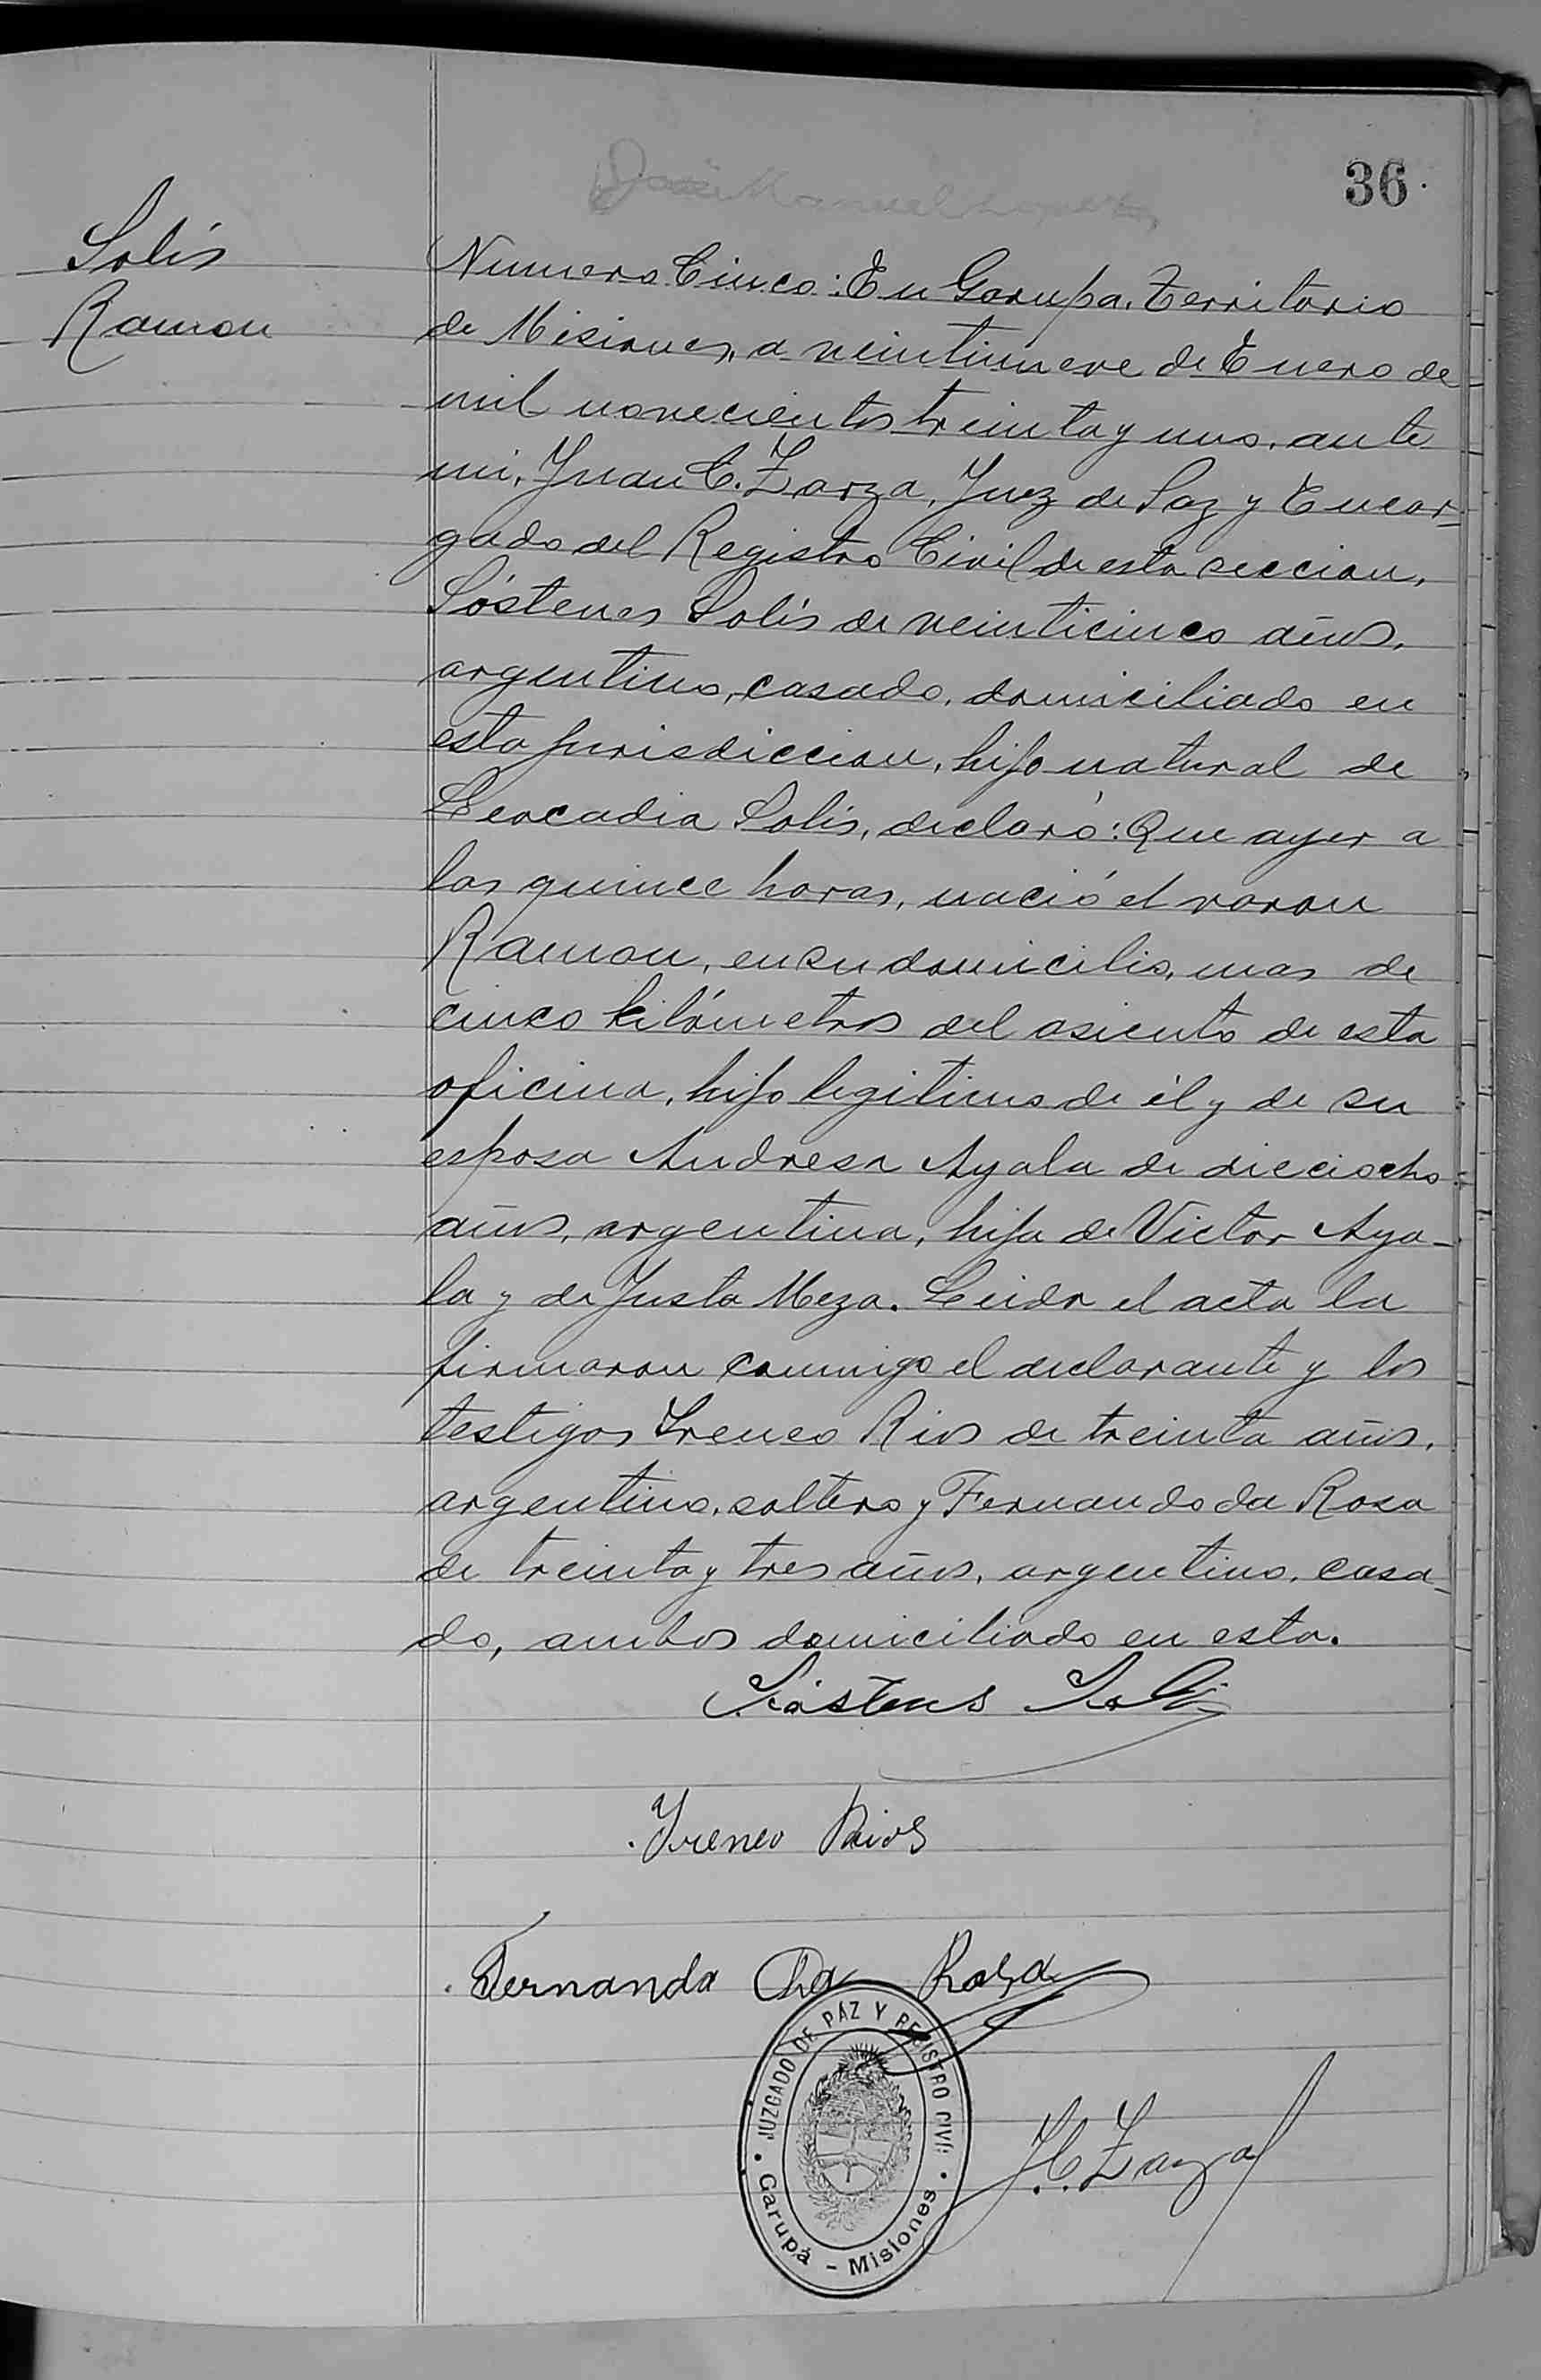 36
Solís
Ramon
Numero Cinco: En Garupa, Territorio
de Misiones, a veintinueve de Enero de
mil novecientos treinta y uno, ante
mi, Juan C. Zarza, Juez de Paz y Encar-
gado del Registro Civil de esta seccion,
Sóstenes Solís de veinticinco años,
argentino, casado, domiciliado en
esta jurisdiccion, hijo natural de
Leocadia Solís, declaró: Que ayer a
las quince horas, nació el varon
Ramon, en su domicilio, mas de
cinco kilómetros del asiento de esta
oficina, hijo legitimo de él y de su
esposa Andresa Ayala de dieciocho
años, argentina, hija de Victor Aya-
la y de Justa Meza. Leida el acta la
firmaron conmigo el declarante y los
testigos Ireneo Rios de treinta años,
argentino, soltero y Fernando da Rosa
de treinta y tres años, argentino, casa-
do, ambos domiciliado en esta.
Sióstenes Solis
Yreneo Rios
Fernando Da Rosa
JUZGADO DE PAZ Y REGISTRO CIVIL
Garupá - Misiones
J.C. Zarza